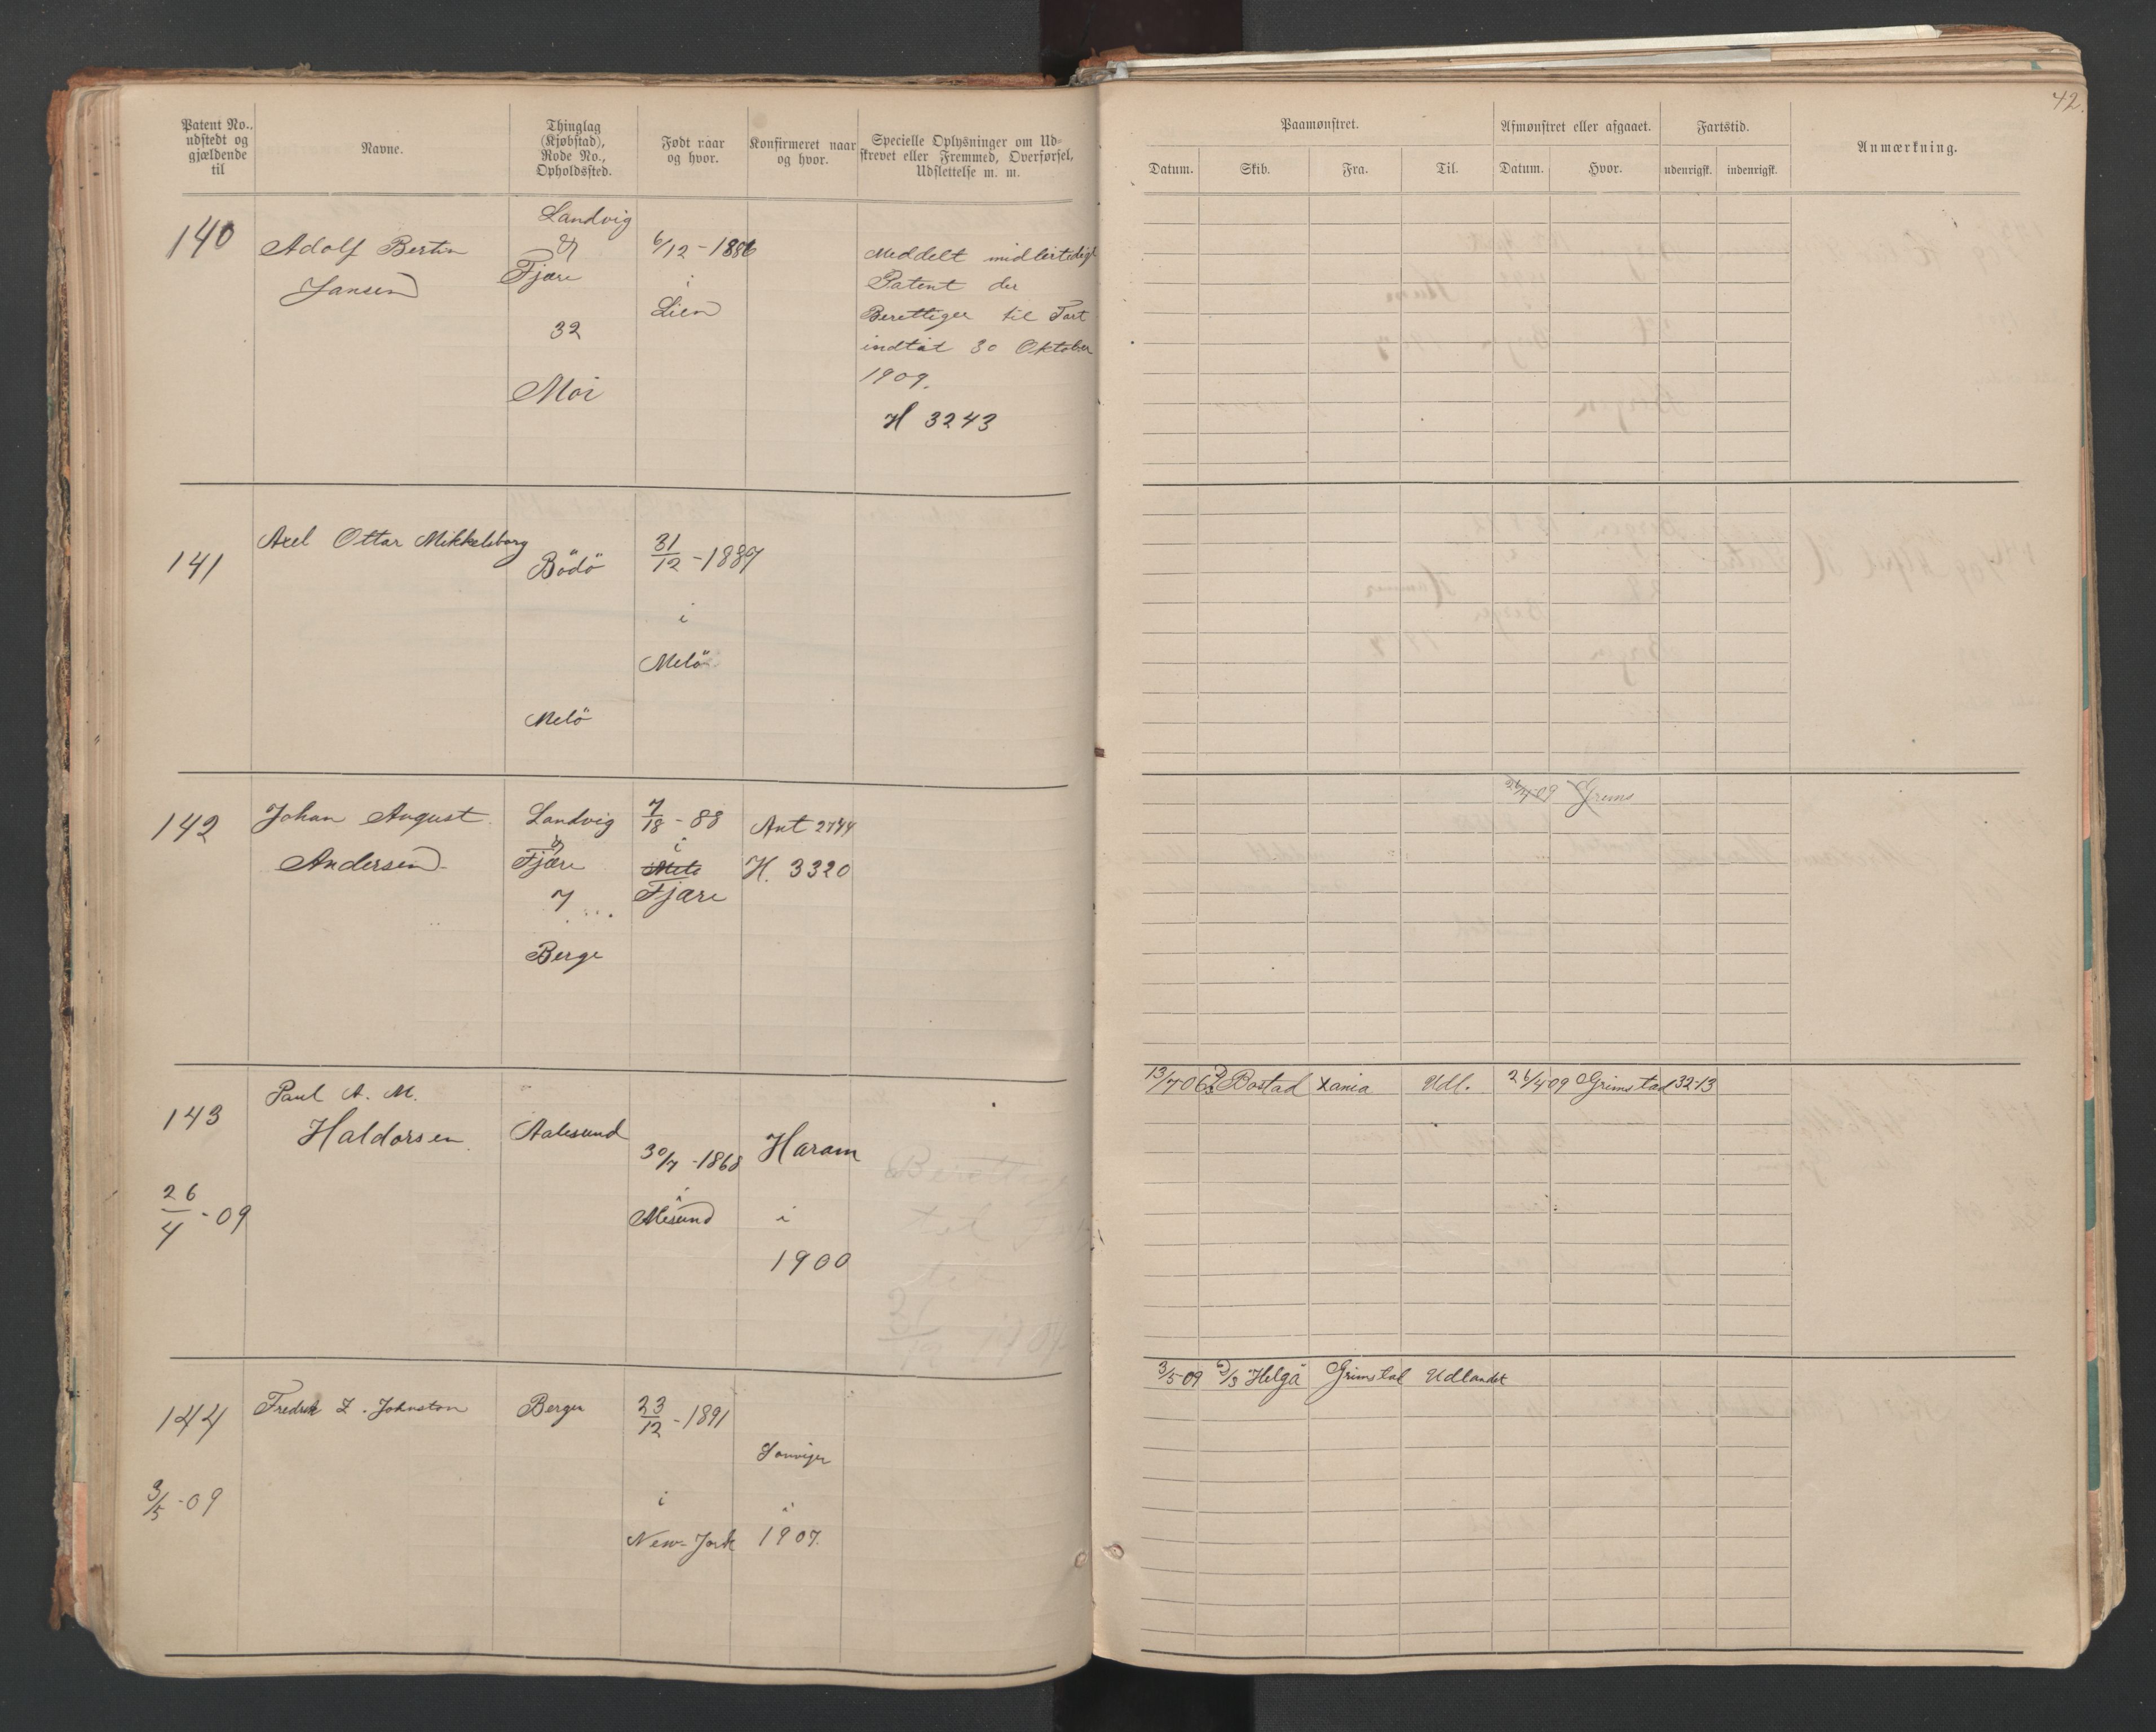 Patent No., udstedt og gjældende til
Navne.
Thinglag (Kjøbstad), Rode No., Opholdssted.
Født naar og hvor.
Konfirmeret naar og hvor.
Specielle Oplysninger om Udskrevet eller Fremmed, Overførsel, Udslettelse m. m.
140
Adolf Bertin
Jansen
Landvig
&
Fjære
32
Moi
6/12 - 1886
i
Lien
Meddelt midlertidigt
Patent der
Berettiger til Fart
indtil 30 Oktober
1909.
H 3243
141
Axel Ottar Mikkelborg
Bodö
Melö
31/12 - 1889
i
Melö
142
Johan August
Andersen
Landvig
&
Fjære
7
Berge
7/18 - 88
i
Melö
Fjære
Ant 2744
H. 3320
143
26/4 - 09
Paul A. M.
Haldorsen
Aalesund
30/7 - 1868
i
Alesund
Haram
i
1900
Berettiget
til
144
3/5 - 09
Fredrik Z. Johnston
Bergen
23/12 - 1891
i
New-York
i
1907.
42.
Paamønstret.
Afmønstret eller afgaaet.
Fartstid.
Anmærkning.
Datum.
Skib.
Fra.
Til.
Datum.
Hvor.
udenrigsk.
indenrigsk.
26/4-09 Grems
13/7 06 Bostad Xania Udl. 26/4 09 Grimstad 32-13
3/5-09 Helga Grimstad Udlandet